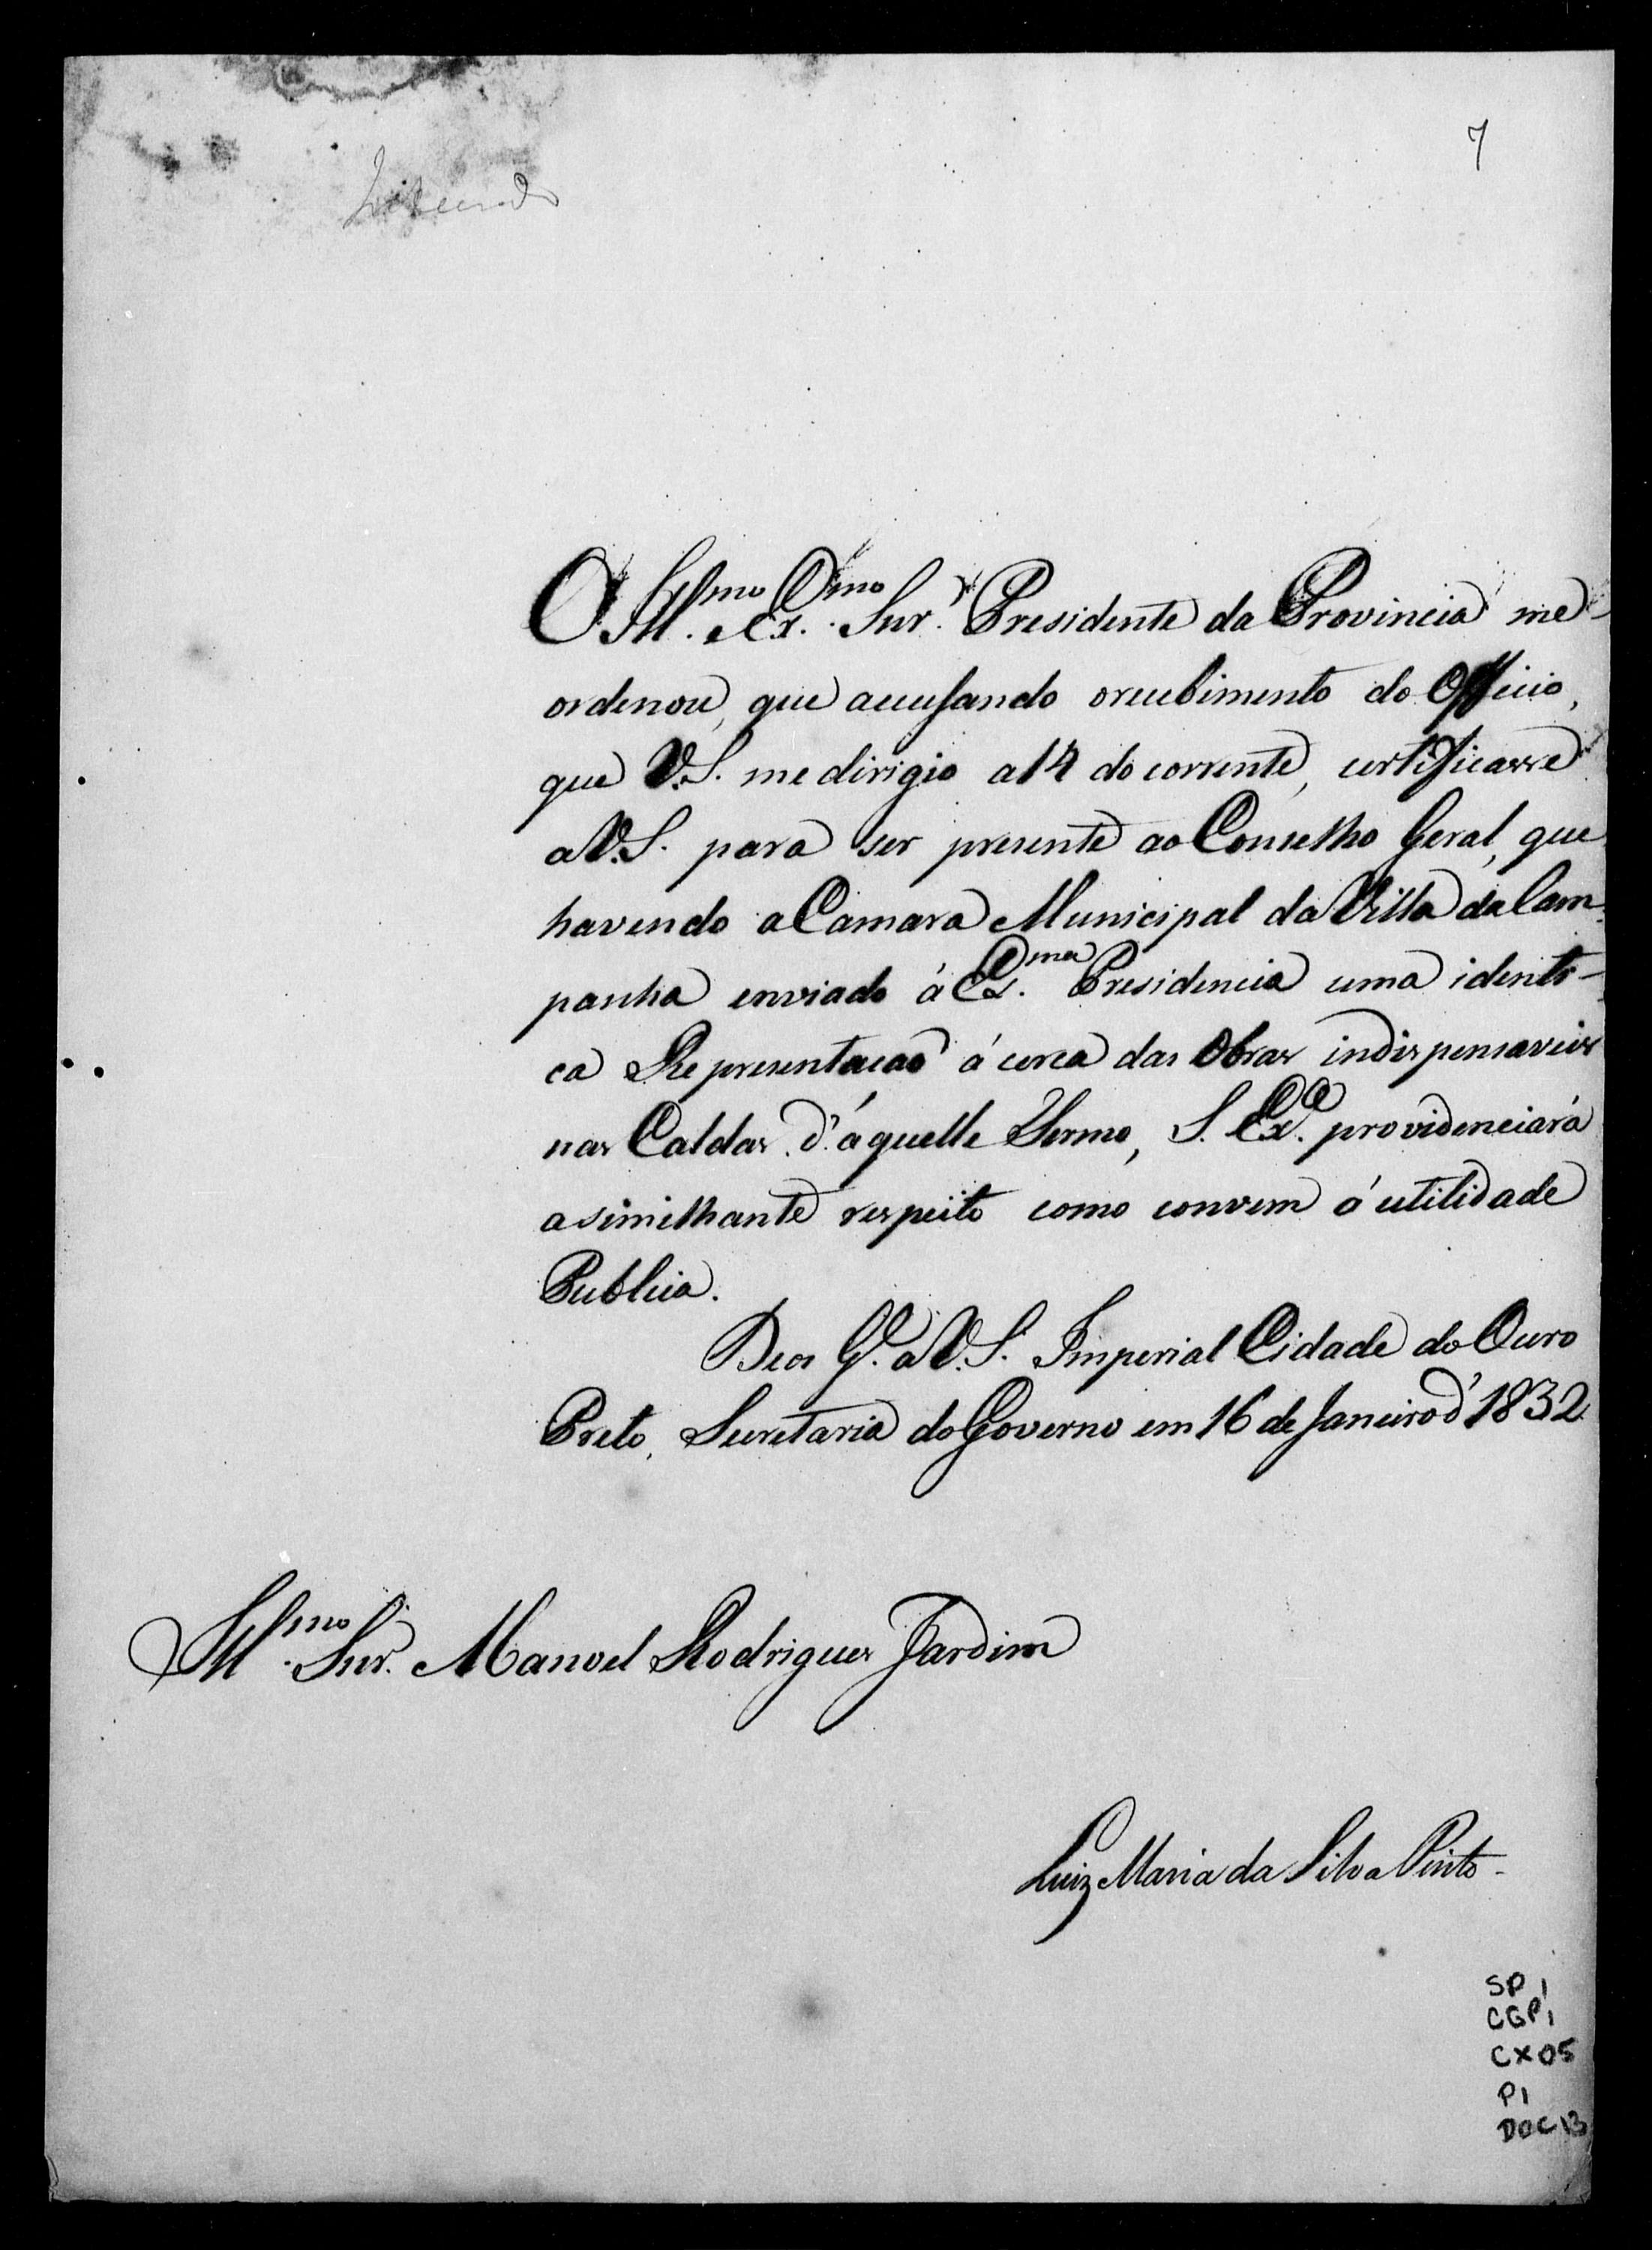 7
O Ill.mo e Ex.mo Snr. Presidente da Provincia me
ordenou, que accusando o recebimento do Officio,
que V.S. me dirigio a 14 do corrente, certificasse
a V.S. para ser presente ao Conselho Geral, que
havendo a Camara Municipal da Villa da Cam-
panha enviado á Ex.ma Presidencia uma identi-
ca Representacaõ á cerca das Obras indispensaveis
nas Caldas d'áquelle Termo, S. Ex.ª providenciará
a similhante respeito como convem á utilidade
Publica.
Deos G.e a V.S. Imperial Cidade do Ouro
Preto, Secretaria do Governo em 16 de Janeiro d'1832.
Ill.mo Snr. Manoel Rodrigues Jardim
Luiz Maria da Silva Pinto
SP 1
CGP1
CX05
P1
DOC 13